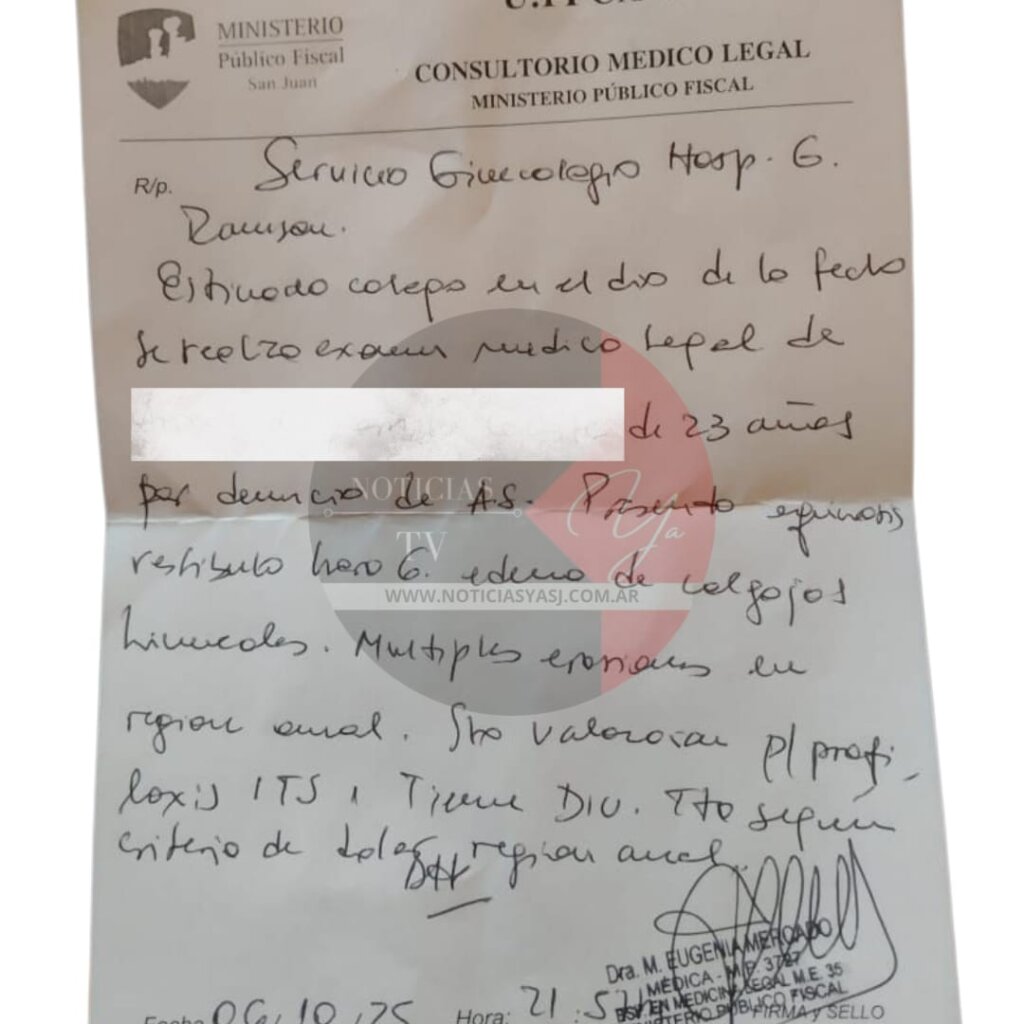 MINISTERIO
Público Fiscal
San Juan
CONSULTORIO MEDICO LEGAL
MINISTERIO PÚBLICO FISCAL
R/p.
Servicio Ginecologia Hosp. G.
Rawson.
Estimado colega en el dia de la fecha
se realizo examen medico legal de
de 23 años
por denuncia de AS. Presenta equimosis
vestibulo hora 6. edema de colgajos
himeneales. Multiples erosiones en
region anal. Sto valoracion p/ profi-
laxis ITS, Tiene DIU. Tto según
criterio de dolor region anal.
NOTICIAS
TV
Ya
WWW.NOTICIASYASJ.COM.AR
Dra. M. EUGENIA MERCADO
MEDICA - M.P. 3727
ESP. EN MEDICINA LEGAL M.E. 35
MINISTERIO PÚBLICO FISCAL
FIRMA y SELLO
Fecha 06, 10, 25 Hora: 21:5